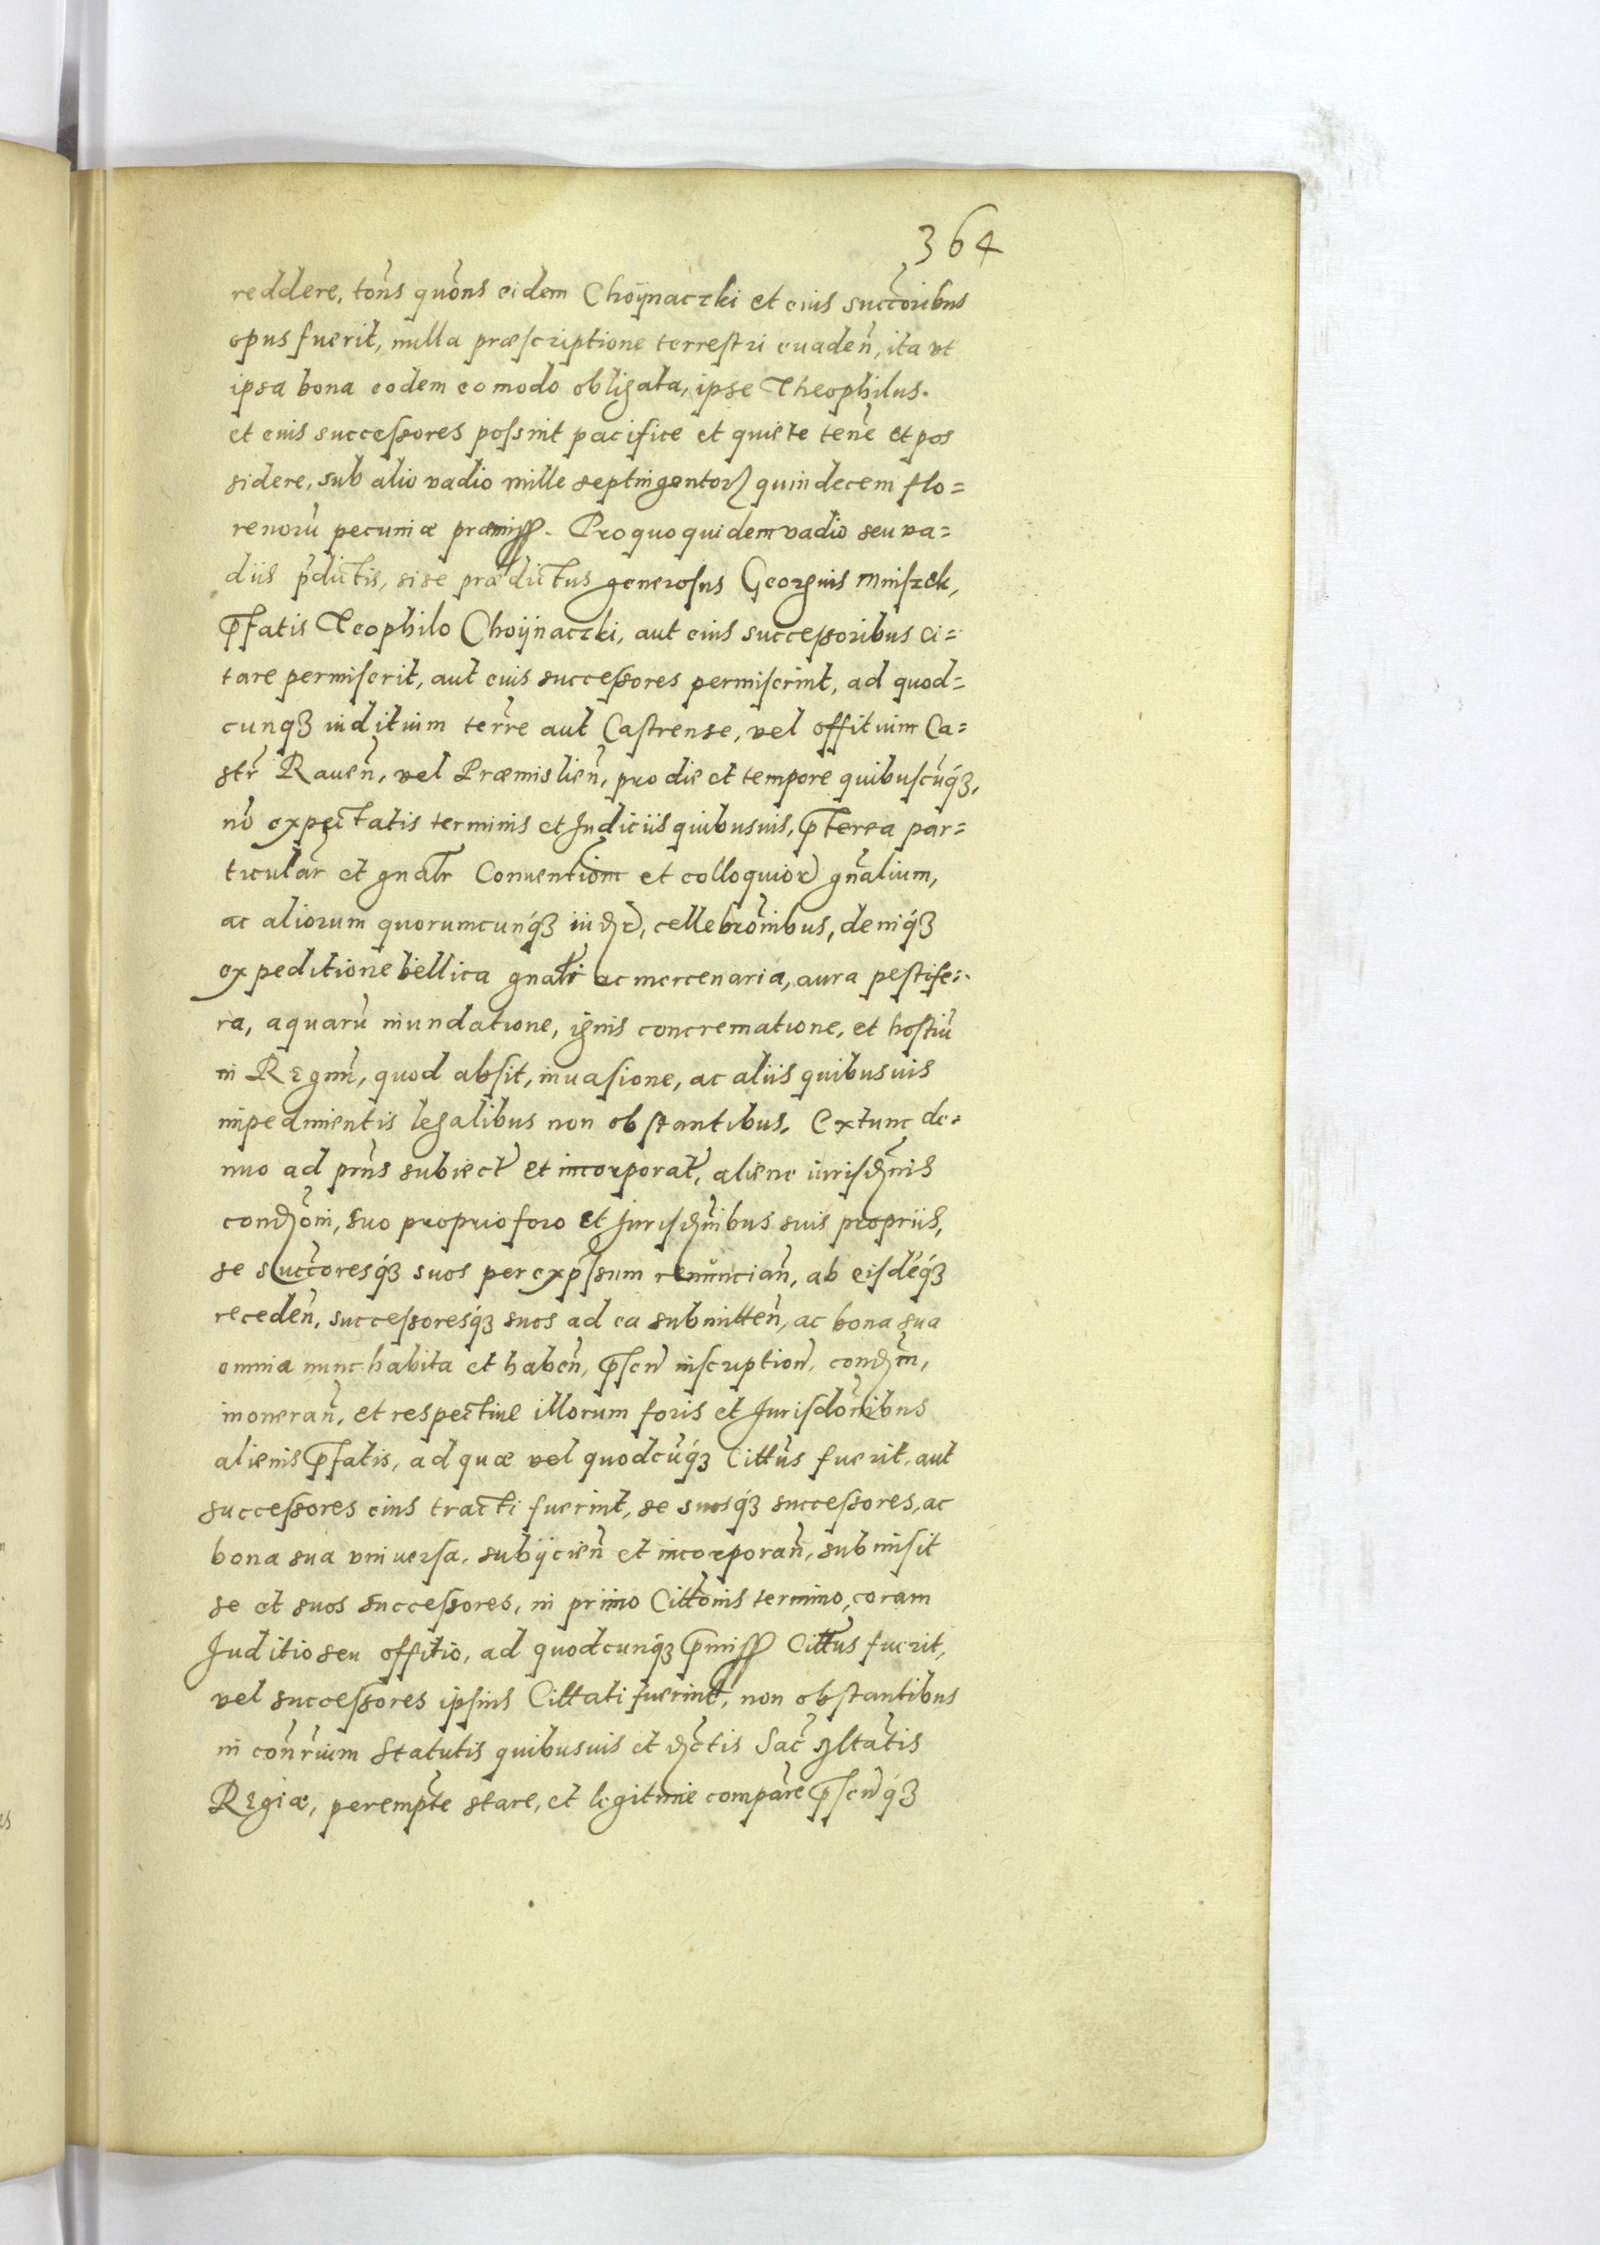 364
reddere, tōns quōns eidem Choÿnaczki et eius succ̄oribus
opus fuerit, nulla præscriptione terrestri euadeñ, ita vt
ipsa bona eodem eo modo obligata, ipse Theophilus.
et euis successores possint pacifice et quiete tenē et pos
sidere, sub alio vadio mille septingentoꝝ quindecem flo=
renorū pecuniæ præmiss. Pro quo quidem vadio seu va=
diis p̄dictis, si se prædictus generosus Georgius Mniszek,
p̄fatis Teophilo Choÿnaczki, aut eius successoribus ci=
tare permiserit, aut euis successores permiserint, ad quod=
cunqꝫ iuditium terr̄e aut Castrense, vel offitium Ca=
str̄ Raueñ, vel Præmislieñ, pro die et tempore quibuscūqꝫ,
nō expectatis terminis et Iudiciis quibusuis, p̄terea par=
ticular̄ et gnālr Conuentionū et colloquioꝝ gn̄alium,
ac aliorum quorumcunqꝫ iudꝝ, cellebrōnibus, deniqꝫ
expeditione bellica gnāli ac mercenaria, aura pestife=
ra, aquarū inundatione, ignis concrematione, et hostiū
in Regnū, quod absit, inuasione, ac aliis quibusuis
impedimentis legalibus non obstantibus. Extunc de=
nuo ad pn̄s subiect̄ et incorporat̄, aliene iurisdn̄is
condōni, suo proprio foro et Jurisdn̄ibus suis propriis,
se succ̄oresqꝫ suos per exp̄ssum renūncian̄, ab eisdēqꝫ
receden̄, successoresqꝫ suos ad ea submitten̄, ac bona sua
omnia nunc habita et haben̄, p̄sen̄ inscription̄, condn̄,
inoneran̄, et respectiue illorum foris et Jurisdōnibus
alienis p̄fatis, ad quæ vel quodcūqꝫ Cittūs fuerit, aut
successores eius tracti fuerint, se suosqꝫ successores, ac
bona sua vniuersa, subÿcien̄ et incorporan̄, submisit
se et suos successores, in primo Cittōnis termino, coram
Juditio seu offitio, ad quodcunqꝫ p̄miss Cittūs fuerit,
vel successores ipsius Cittati fuerint, non obstantibus
in con̄rium Statutis quibusuis et dc̄tis Sac̄ Mtatis
Regiæ, perempt̄e stare, et legitime compar̄e p̄sen̄qꝫ